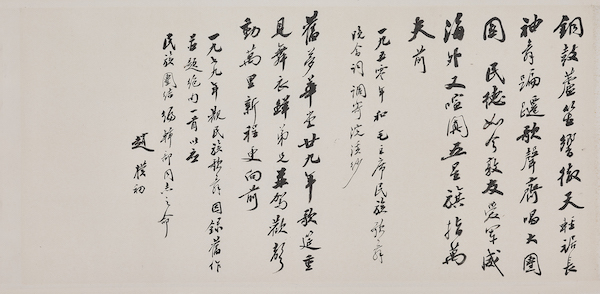 銅鼓蘆笙響徹天輕裾長
袖舞蹁躚歌聲齊唱大團
圓 民德如今敦友愛軍威
海外又喧闐五星旗指萬
夫前
一九五零年和毛主席民族歌舞
晚会詞調寄浣溪紗
舊夢華堂廿九年歌筵重
見舞衣鮮弟兄並駕歡聲
動萬里新程更向前
一九七九年觀民族歌舞因錄舊作
並題絕句一首以应
民族團结編輯部同志之命
趙樸初